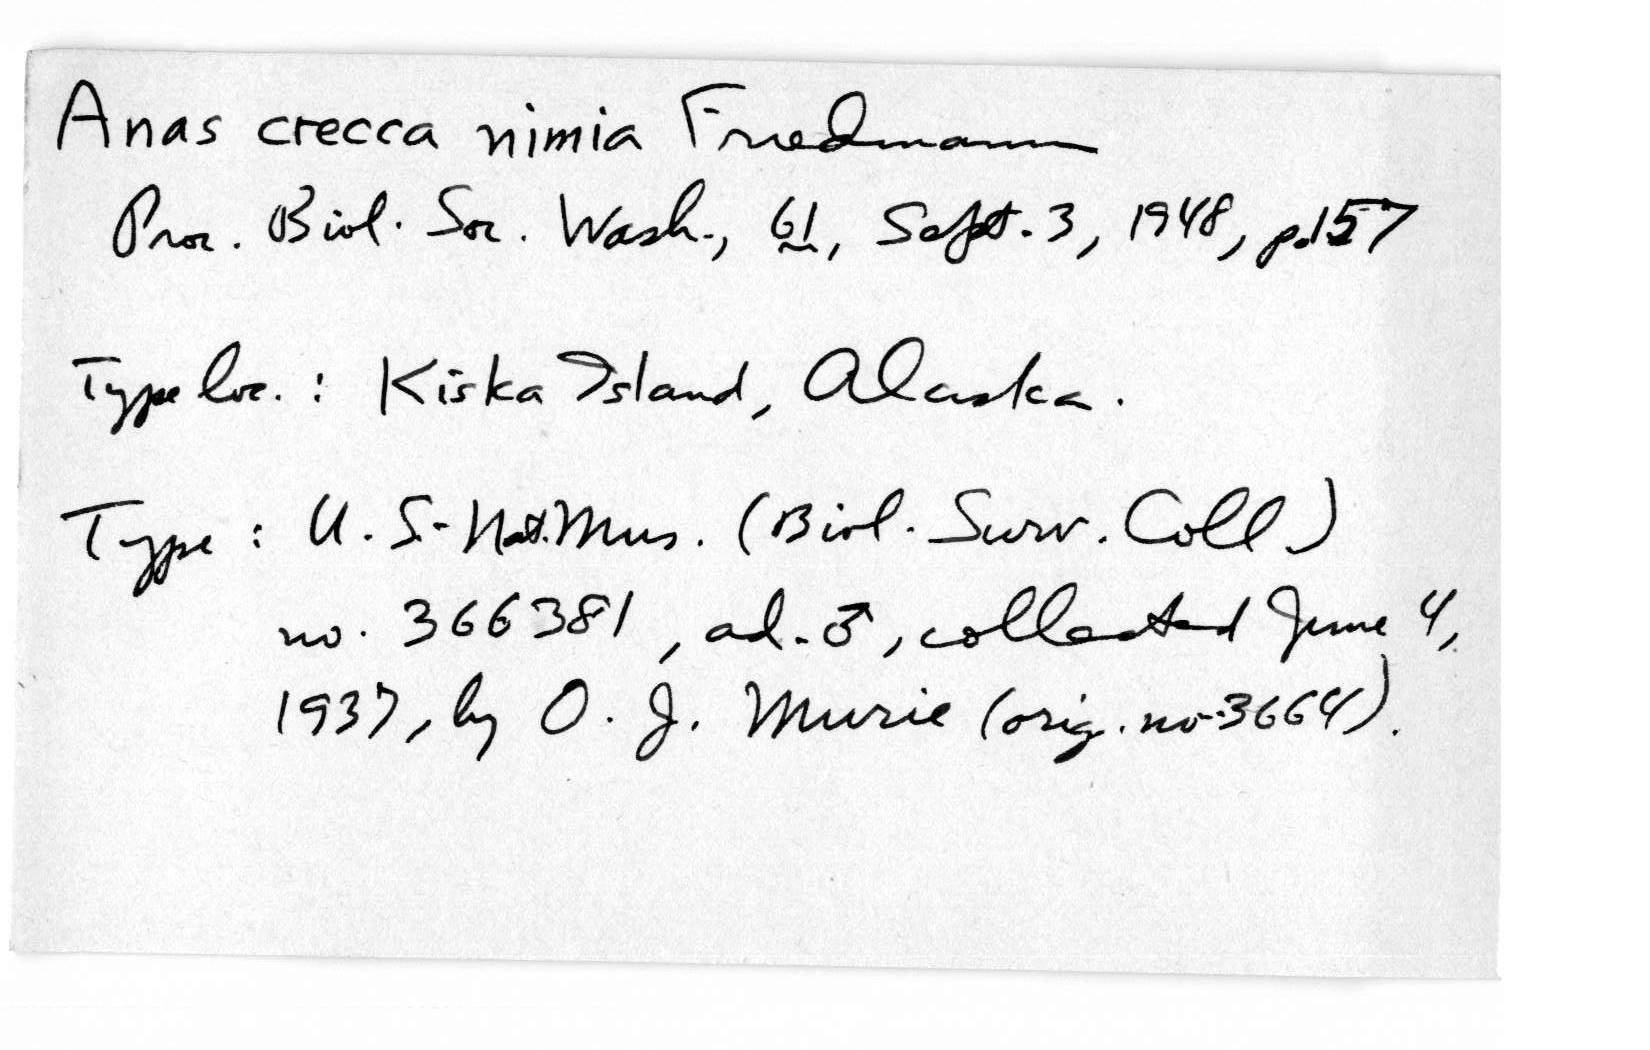 Anas crecca nimia Friedmann
Proc. Biol. Soc. Wash., 61, Sept. 3, 1948, p.157
Type loc. : Kiska Island, Alaska.
Type : U. S. Nat. Mus. (Biol. Surv. Coll.)
no. 366381, ad. ♂, collected June 4,
1937, by O. J. Murie (orig. no. 3664).